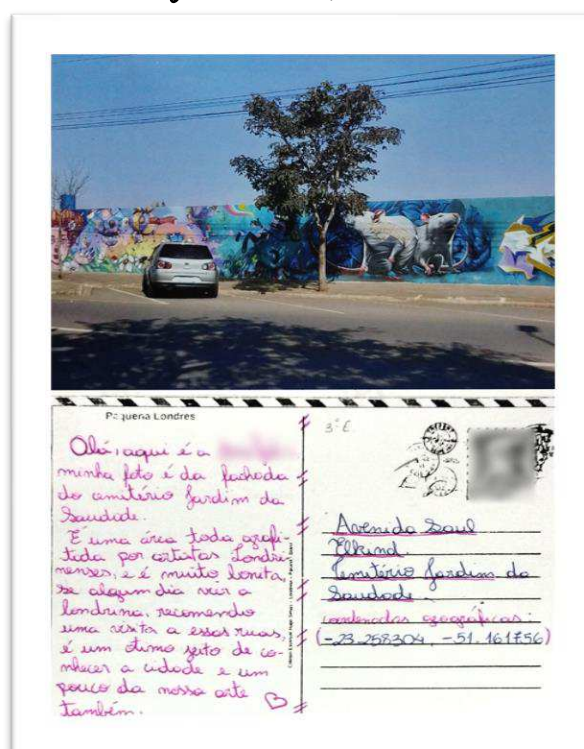 Pequena Londres
Olá, aqui é a
minha foto é da fachada
do cemitério Jardim da
Saudade.
É uma área toda grafi-
tada por artistas Londri-
nenses, e é muito bonita,
se algum dia vir a
londrina, recomendo
uma visita a essas ruas,
é um ótimo jeito de co-
nhecer a cidade e um
pouco da nossa arte
também.
3º E
Avenida Saul
Elkind.
Cemitério Jardim da
Saudade.
coordenadas geográficas:
(-23.258304, -51.161756)